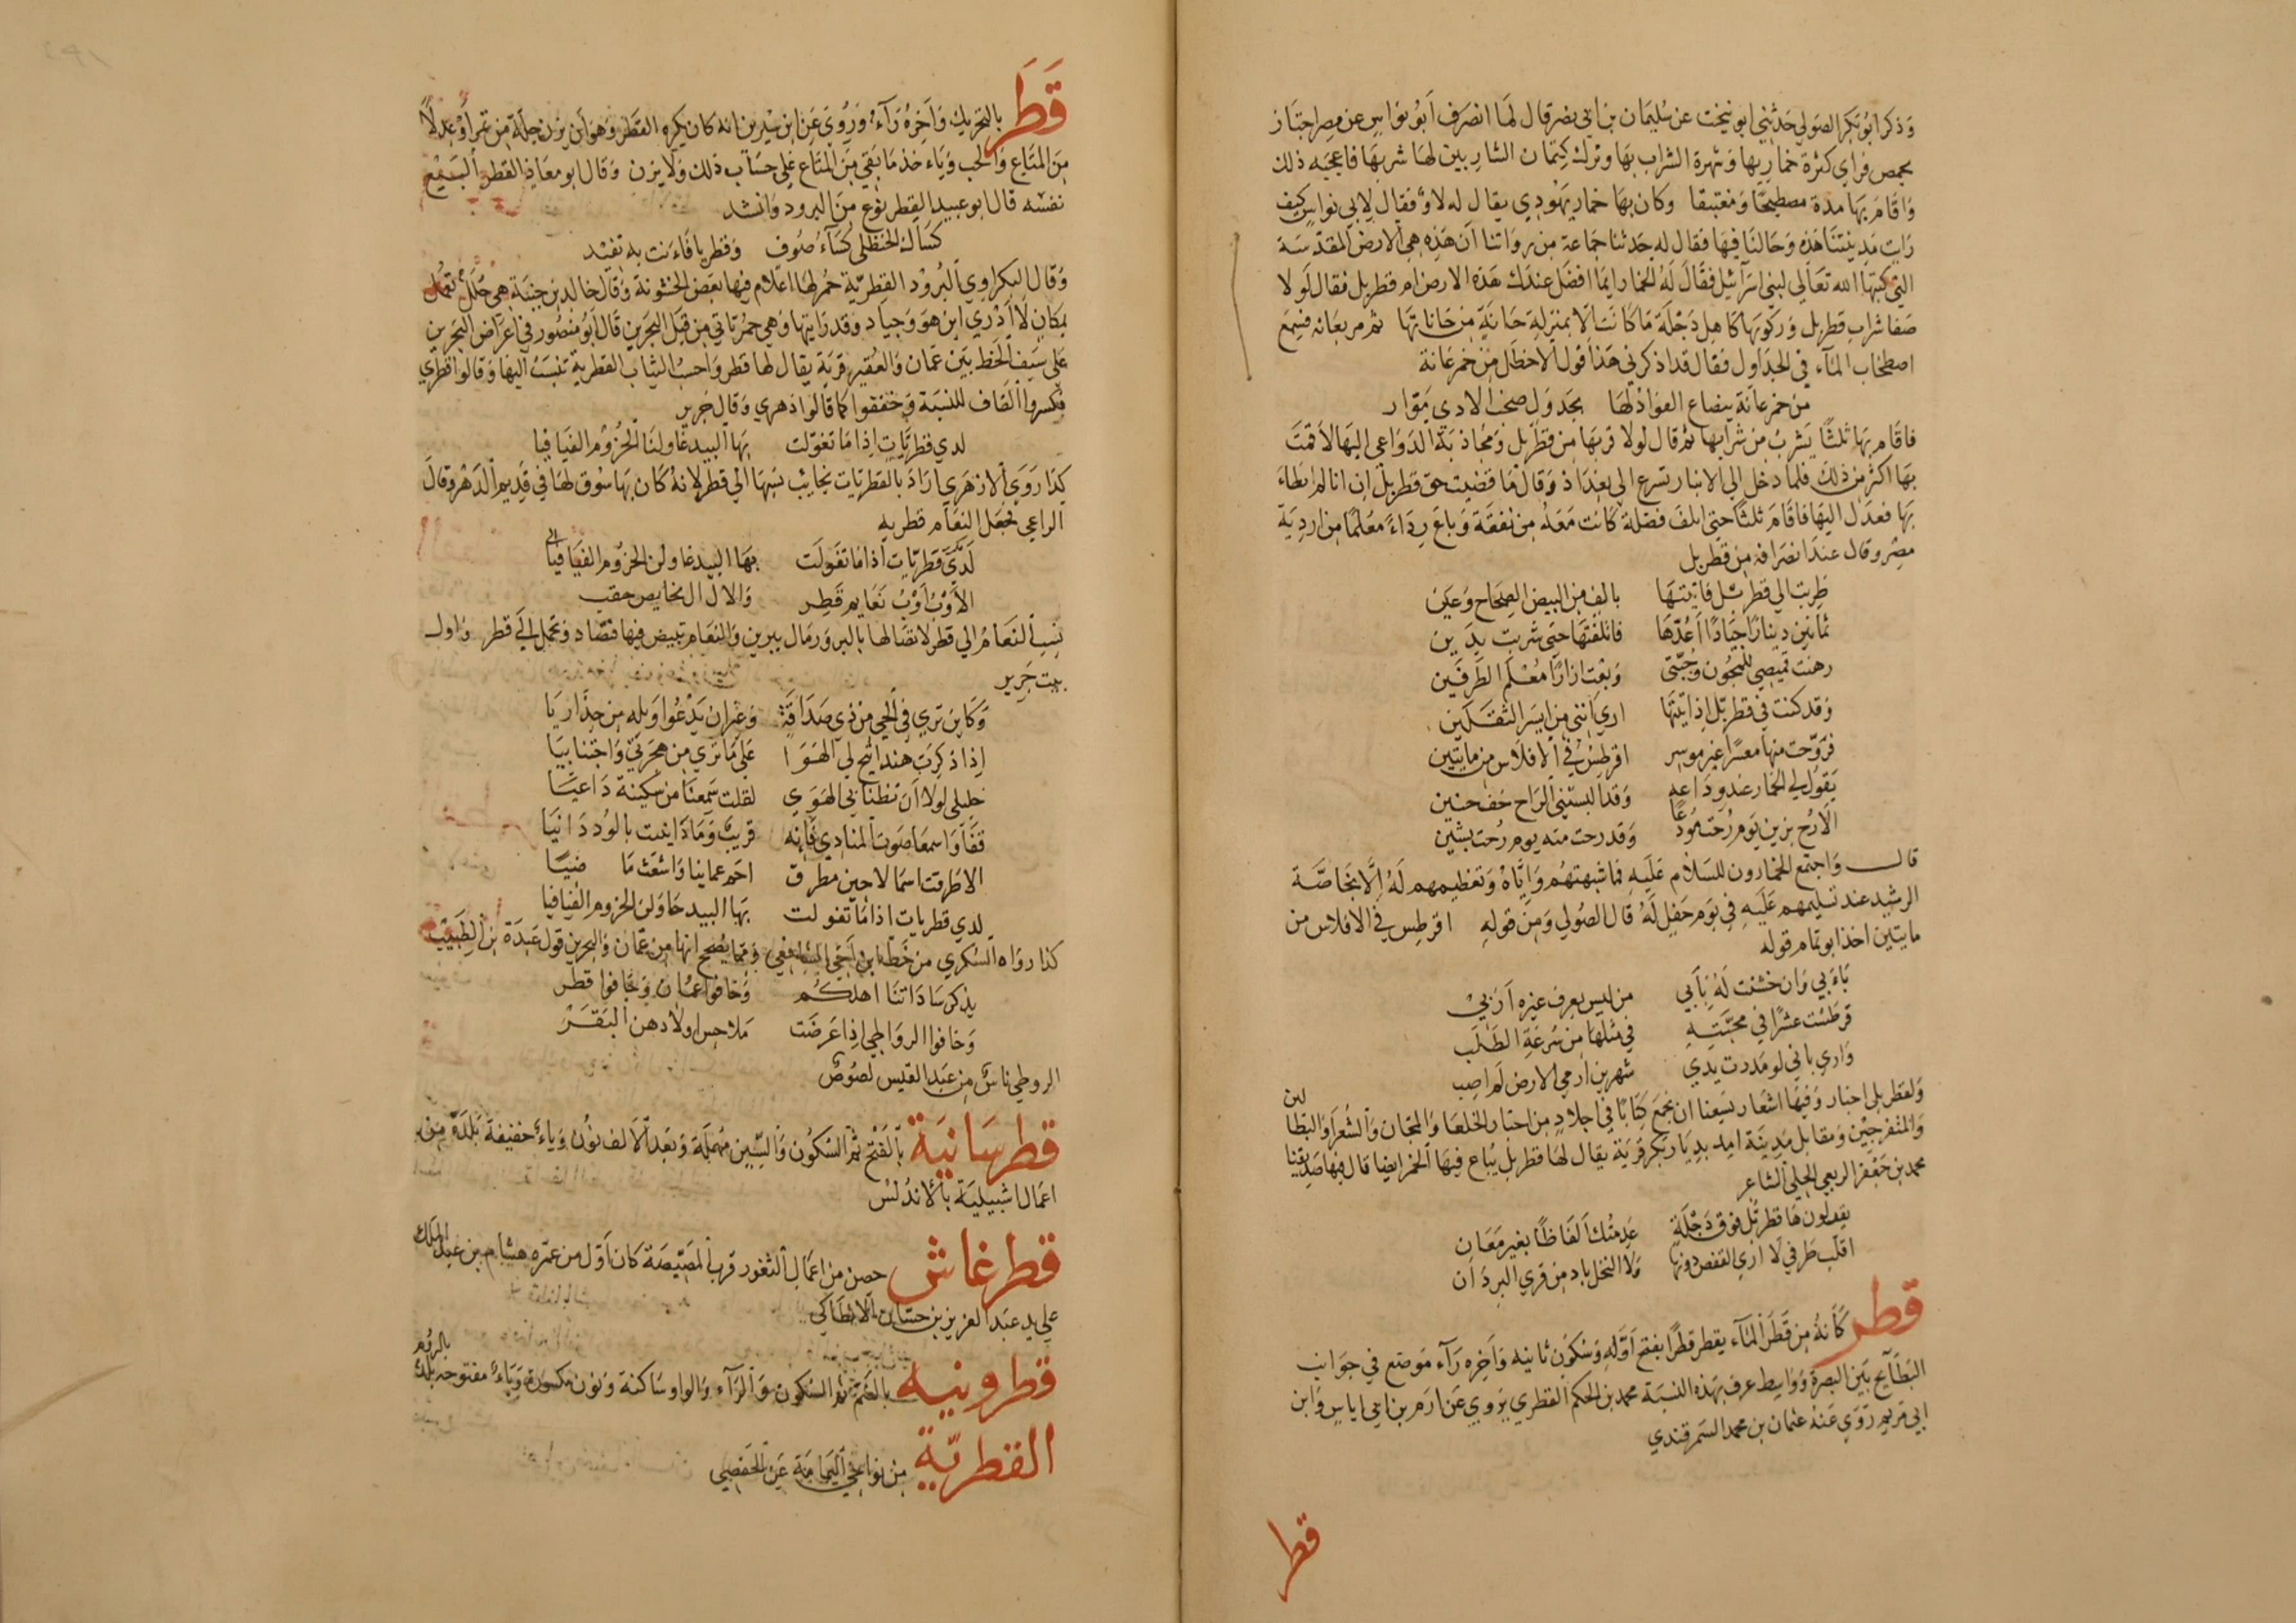 وذكر ابو بكر الصولي حدثني ابو نيخت عن سليمان بن ابي نصر قال لما انصرف ابو نواس عن مصر اجتاز
بحمص فراي كثرة خماريها وشهرة الشراب بها وترك كتمان الشاربين لها شربها فاعجبه ذلك
واقام بها مدة مصطبحا ومغتبقا وكان بها خمار يهودي يقال له لاوي فقال لابي نواس كيف
رايت مدينتنا هذه وحالنا فيها فقال له حدثنا جماعة من رواتنا ان هذه هي الارض المقدسة
التي كتبها الله تعالي لبني اسرائيل فقال له الخمار ايما افضل عندك هذه الارض ام قطربل فقال لولا
صفا شراب قطربل وركوبها كاهل دجلة ما كانت الا بمنزلة حانة من حاناتها ثم مر بعانه فسمع
اصطخاب الماء في الجداول فقال قد اذكرني هذا قول الاخطل من خمر عانة
من خمر عانة ينصاع الفؤاد لها بجدول صخب الاذي موار
فاقام بها ثلثا يشرب من شرابها ثم قال لولا قربها من قطربل ومجاذبة الدواعي اليها لاقمت
بها اكثر من ذلك فلما دخل الي الانبار تسرع الي بغداذ وقال ما قضيت حق قطربل ان انا لم ابطاء
بها فعدل اليها فاقام ثلثا حتى اتلف فضلة كانت معه من نفقة وباع رداء معلما من اردية
مصر وقال عند انصرافه من قطربل
طربت الي قطربل فاتيتها بالف من البيض الصحاح وعين
ثمانين دينارا جيادا اعدها فاتلفتها حتى شربت بدين
رهنت قميصي للمجون وجبتي وبعت ازارا معلم الطرفين
وقد كنت في قطربل اذ اتيتها اري انني من ايسر الثقلين
فروحت منها معسرا غير موسر اقرطس في الافلاس من مايتين
يقول لي الخمار عند وداعه وقد البستني الراح خف حنين
الا رح بزين يوم رحت مودعا وقد رحت منه يوم رحت بشين
قال واجتمع الخمارون للسلام عليه فما شبهتهم واياه وتعظيمهم له الا بخاصة
الرشيد عند تسليمهم عليه في يوم حفل له قال الصولي ومن قوله اقرطس في الافلاس من
مايتين اخذ ابو تمام قوله
بابي وان خشنت له بابي من ليس يعرف غيره اربي
قرطست عشرا في محبته في مثلها من سرعة الطلب
واري باني لو مددت يدي شهرين ارمي الارض لم اصب
ولقطربل اخبار وفيها اشعار يسعنا ان نجمع كتابا في اجلاد من اخبار الخلعا والمجان والشعرا والبطالين
والمتفرجين ومقابل مدينة امد بديار بكر قرية يقال لها قطربل يباع فيها الخمر ايضا قال فيها صديقنا
محمد بن جعفر الربعي الحلي الشاعر
يقولون ها قطربل فوق دجلة عدمتك الفاظا بغير معان
اقلب طرفي لا اري القفص دونها ولا النخل باد من قري البردان
قطر كانه من قطر الماء يقطر قطرا بفتح اوله وسكون ثانيه واخره راء موضع في جوانب
البطايح بين البصرة وواسط عرف بهذه النسبة محمد بن الحكم القطري يروي عن ادم بن ابي اياس وابن
ابي مريم روي عنه عثمان بن محمد السمرقندي
قطر
قطر بالتحريك واخره راء وروي عن ابن سيرين انه كان يكره القطر وهو ان يزن جلة من تمر او عدلا
من المتاع والحب وياخذ ما بقي من المتاع علي حساب ذلك ولا يزن وقال ابو معاذ القطر البيع
نفسه قال ابو عبيد القطر نوع من البرود وانشد
كساك الحنظلي كساء صوف وقطريا فانت به تفيد
وقال البكراوي البرود القطرية حمر لها اعلام فيها بعض الخشونة وقال خالد بن جنبة هي حلل تعمل
بمكان لا ادري اين هو وجياد وقد رايتها وهي حمر تاتي من قبل البحرين قال ابو منصور في اعراض البحرين
علي سيف الخط بين عمان والعقير قرية يقال لها قطر واحسب الثياب القطرية تنسب اليها وقالوا قطري
فكسروا القاف للنسبة وخففوا كما قالوا دهري وقال جرير
لدي قطريات اذا ما تغولت بها البيد غاولنا الحزوم الفيافيا
كذا روي الازهري اراد بالقطريات نجايب نسبها الي قطر لانه كان بها سوق لها في قديم الدهر وقال
الراعي فجعل النعام قطريه
لدي قطريات اذا ما تغولت بها البيد غاولن الحزوم الفيافيا
الاوب اوب نعايم قطر والال ال نحايص حقب
نسب النعام الي قطر لاتصالها بالبر ورمال يبرين والنعام تبيض فيها فتصاد وتحمل الي قطر واول
بيت جرير
وكاين تري في الحي من ذي صداقة وغيران يدعوا ويله من حذاريا
اذا ذكرت هند اتيح لي الهوا علي ما تري من هجرتي واجتنابيا
خليلي لولا ان تظنا بي الهوي لقلت سمعنا من سكينة داعيا
قفا واسمعا صوت المنادي فانه قريب وما دانيت بالود دانيا
الا طرقت اسما لا حين مطرق احم عمانيا واشعث ما ضيا
لدي قطريات اذا ما تغولت بها البيد حاولن الحزوم الفيافيا
كذا رواه السكري من خط ابن اخي الشافعي ومما يصحح انها من عمان والبحرين قول عبدة بن الطبيب
يذكر ساداتنا اهلكم وخافوا عمان وخافوا قطر
وخافوا الرواطي اذا عرضت ملاحس اولادهن البقر
الروطي ناس من عبد القيس لصوص
قطرسانية بالفتح ثم السكون والسين مهملة وبعد الالف نون وياء خفيفة بلدة من
اعمال اشبيلية بالاندلس
قطرغاش حصن من اعمال الثغور قرب المصيصة كان اول من عمره هشام بن عبد الملك
علي يد عبد العزيز بن حسان الانطاكي
قطرونيه بالضم ثم السكون والراء والواو ساكنة ونون مكسورة وياء مفتوحه بلد بالروم
القطرية من نواحي اليمامة عن الحفصي